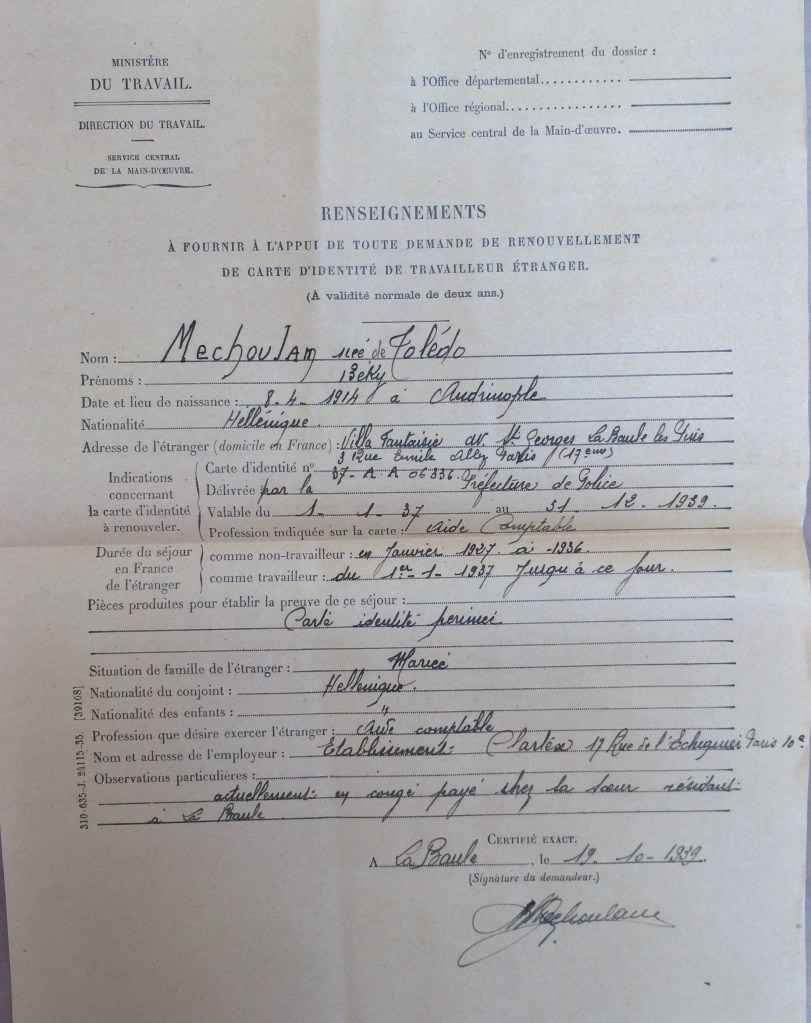 MINISTÈRE
DU TRAVAIL.
DIRECTION DU TRAVAIL.
SERVICE CENTRAL
DE LA MAIN-D'ŒUVRE.
N° d'enregistrement du dossier :
à l'Office départemental............
à l'Office régional................
au Service central de la Main-d'œuvre.
RENSEIGNEMENTS
À FOURNIR À L'APPUI DE TOUTE DEMANDE DE RENOUVELLEMENT
DE CARTE D'IDENTITÉ DE TRAVAILLEUR ÉTRANGER.
(À validité normale de deux ans.)
Nom : Mechoulam née de Tolédo
Prénoms : Beky
Date et lieu de naissance : 8-4-1914 à Andrinople
Nationalité Hellénique.
Adresse de l'étranger (domicile en France) : Villa Fantaisie av. St Georges La Baule les Pins
3 Rue Emile Ally Paris (17eme)
Indications concernant la carte d'identité à renouveler.
Carte d'identité n° 37-A A 06336.
Délivrée par la Préfecture de Police
Valable du 1-1-37 au 31-12-1939.
Profession indiquée sur la carte : Aide Comptable
Durée du séjour en France de l'étranger
comme non-travailleur : en Janvier 1927 à -1936.
comme travailleur : du 1er-1-1937 Jusqu'à ce jour.
Pièces produites pour établir la preuve de ce séjour :
Carte identité perimée
Situation de famille de l'étranger : Mariée
Nationalité du conjoint : Hellenique.
Nationalité des enfants : "
Profession que désire exercer l'étranger : Aide comptable
Nom et adresse de l'employeur : Etablissement Clartéx 17 Rue de l'Echiquier Paris 10e
Observations particulières :
actuellement en congé payé chez la sœur résidant
à La Baule
310-635-J. 24115-35. [39108]
CERTIFIÉ EXACT.
A La Baule, le 19-10-1939.
(Signature du demandeur.)
Mechoulam